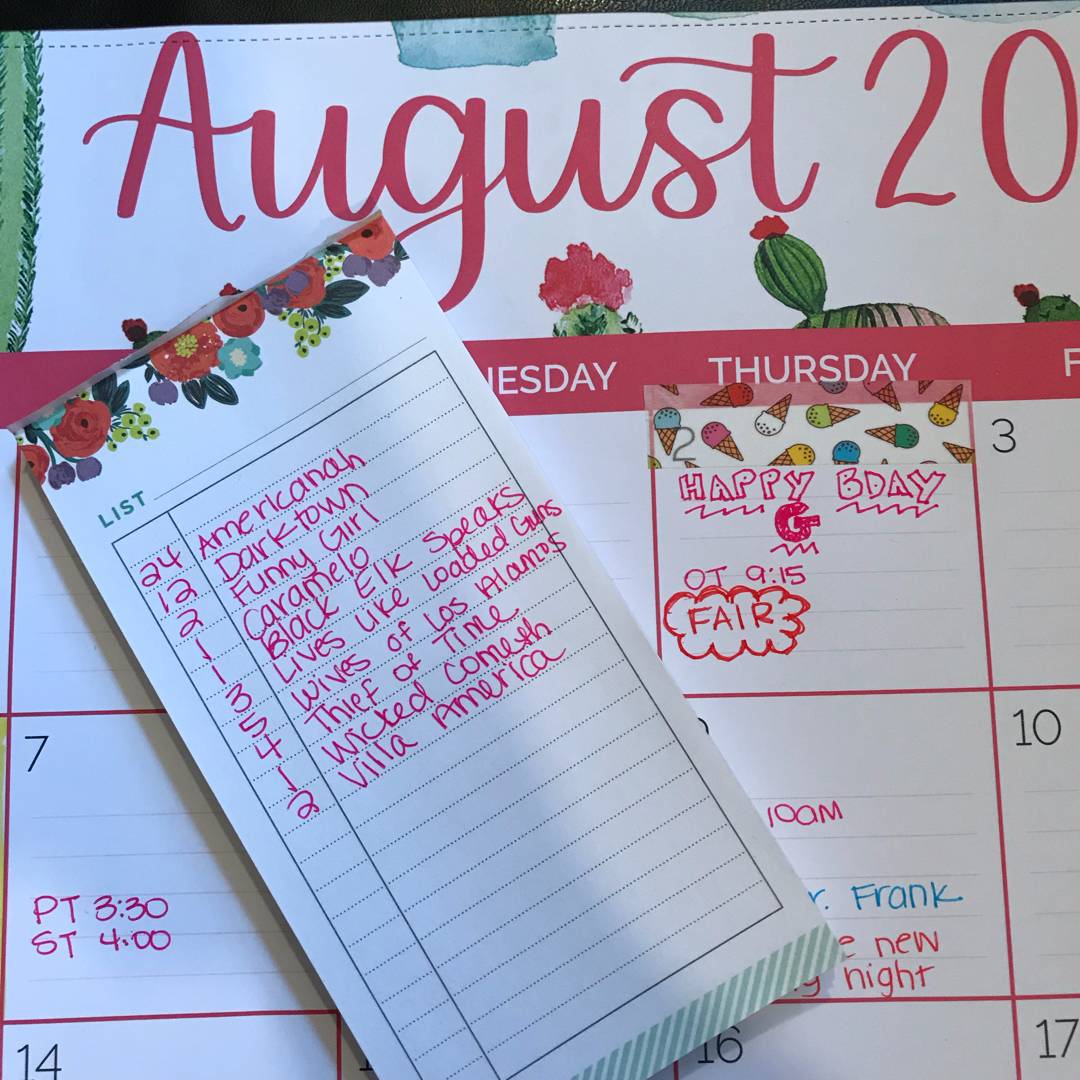 August 20
NESDAY
THURSDAY
F
2
3
HAPPY BDAY
G
OT 9:15
FAIR
LIST
24 Americanah
12 Darktown
2 Funny Girl
1 Caramelo
1 Black Elk Speaks
3 Lives Like Loaded Guns
5 Wives of Los Alamos
4 Thief of Time
1 Wicked Cometh
2 Villa America
7
PT 3:30
ST 4:00
10
10am
r. Frank
e new
y night
14
16
17